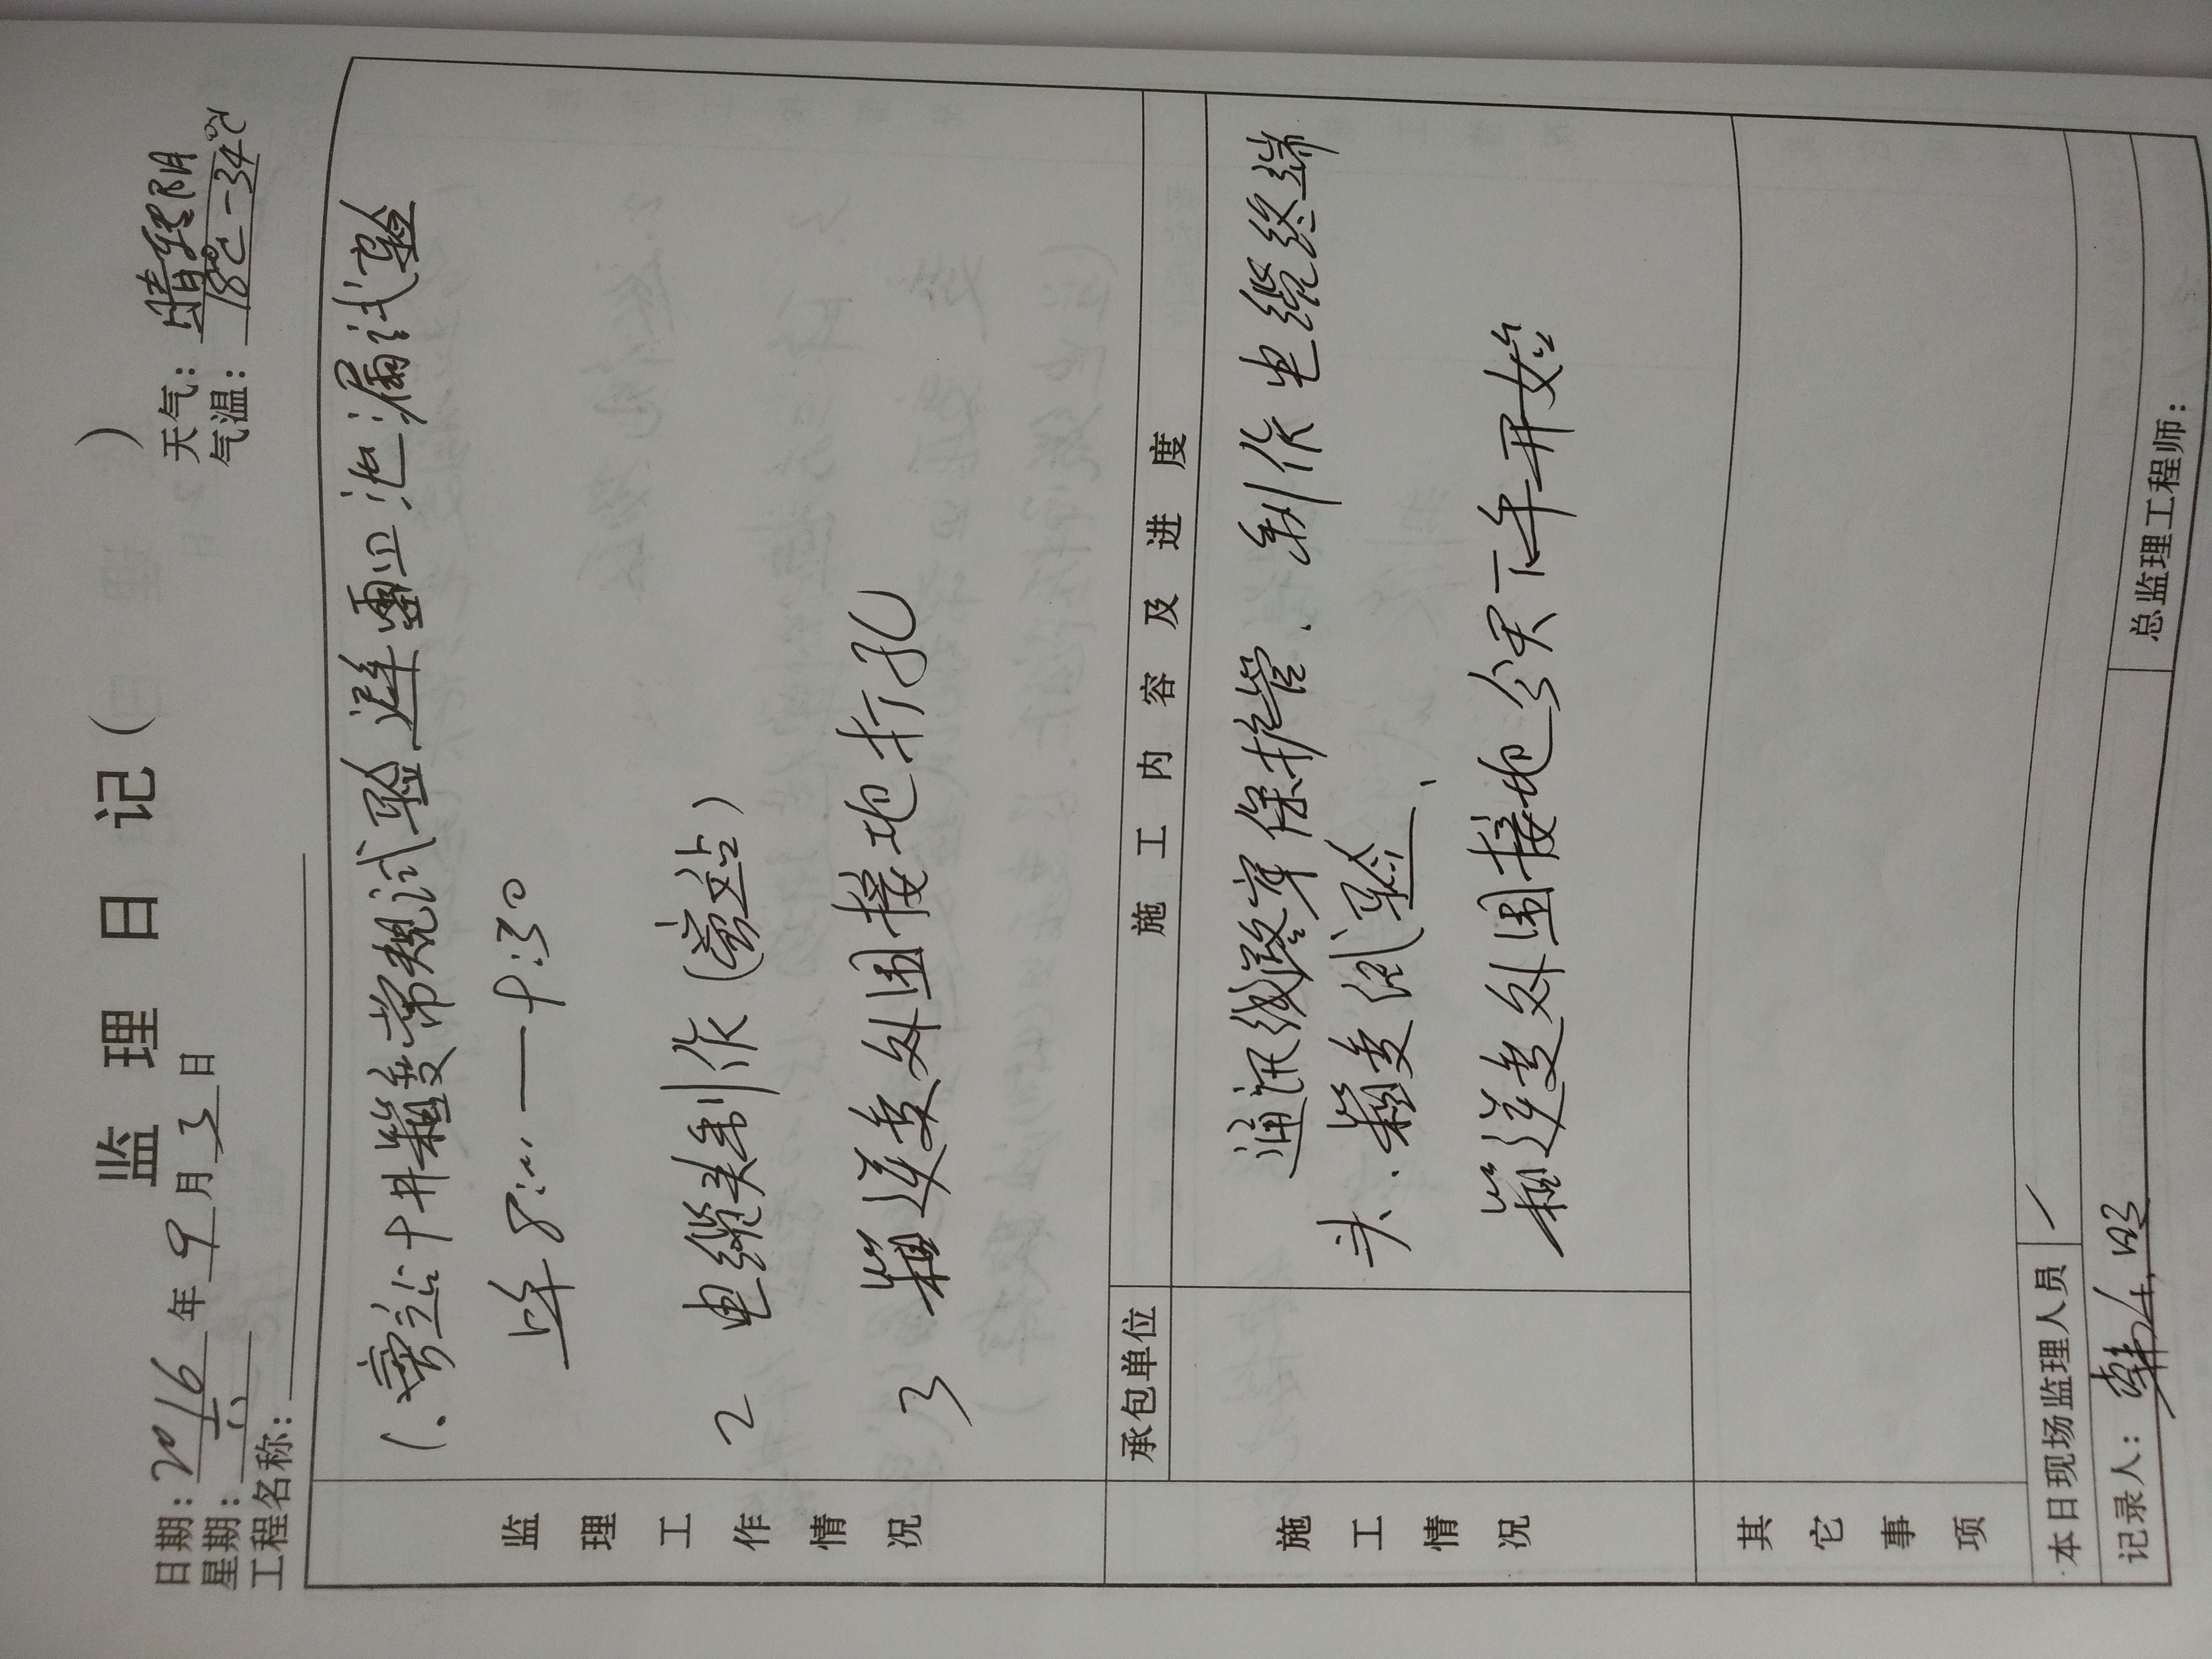 监理日记( )
日期：2016年9月3日 天气：晴转阴
星期：六 气温：18℃-34℃
工程名称：
监理工作情况
1、旁站十井箱变常规试验避雷四泄漏试验
上午8:00——9:30
2 电缆头制作(旁站)
3 箱逆变外围接地打孔
施工情况
承包单位
施工内容及进度
通讯线路穿保护管.制作电缆终端
头.箱变试验、
箱逆变外围接地今天下午开始
其它事项
本日现场监理人员 /
记录人：韩 总监理工程师：